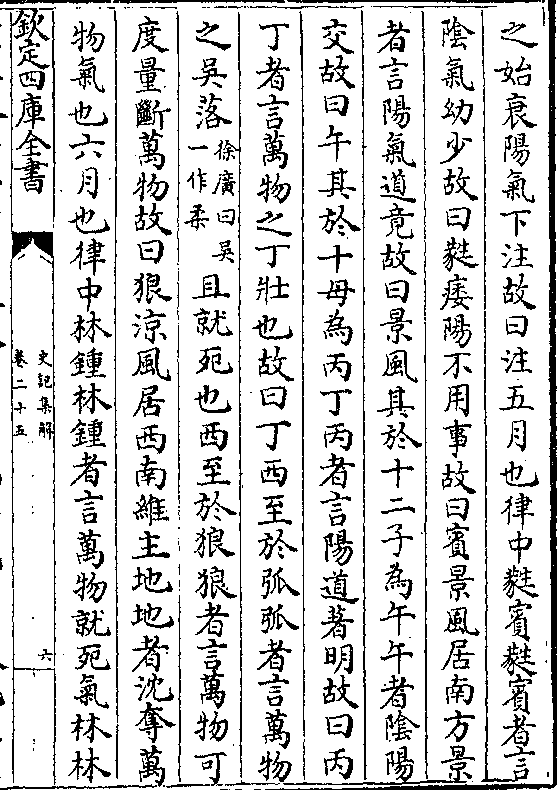 之始衰陽氣下注故曰注五月也律中蕤賓蕤賓者言
陰氣幼少故曰蕤痿陽不用事故曰賓景風居南方景
者言陽氣道竟故曰景風其於十二子為午午者陰陽
交故曰午其於十母為丙丁丙者言陽道著明故曰丙
丁者言萬物之丁壯也故曰丁西至於弧弧者言萬物
之吳落徐廣曰吳一作柔且就死也西至於狼狼者言萬物可
度量斷萬物故曰狼涼風居西南維主地地者沈奪萬
物氣也六月也律中林鍾林鍾者言萬物就死氣林林
欽定四庫全書
史記集解
卷二十五
六